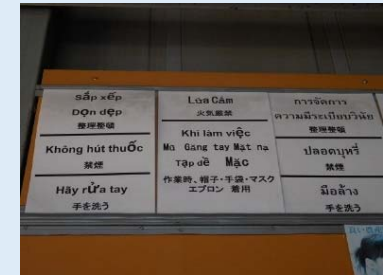 Sắp xếp
Dọn dẹp
整理整頓
Không hút thuốc
禁煙
Hãy rửa tay
手を洗う
Lửa Cấm
火気厳禁
Khi làm việc
Mũ Găng tay Mặt nạ
Tạp dề Mặc
作業時、帽子・手袋・マスク
エプロン 着用
การจัดการ
ความมีระเบียบวินัย
整理整頓
ปลอดบุหรี่
禁煙
มือล้าง
手を洗う